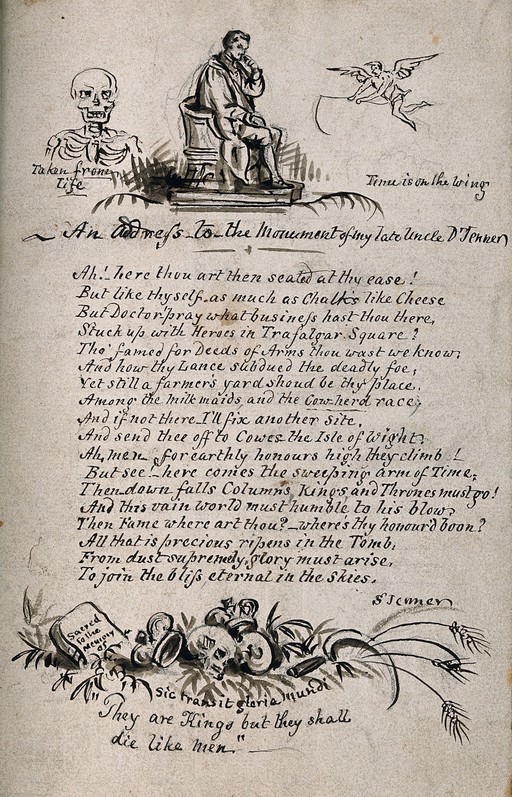 Taken from
Life
Time is on the wing
An Address to the Monument of my late Uncle Dr Jenner
Ah! here thou art then seated at thy ease!
But like thyself as much as Chalk's like Cheese
But Doctor pray what business hast thou there,
Stuck up with Heroes in Trafalgar Square?
Tho' famed for Deeds of Arms thou wast we know;
And how thy Lance subdued the deadly foe;
Yet still a farmer's yard shoud be thy place,
Among the milkmaids and the Cow-herd race;
And if not there I'll fix another site,
And send thee off to Cowes the Isle of Wight;
Ah, men, for earthly honours high they climb!
But see! here comes the sweeping arm of Time,
Then down falls Columns, Kings and Thrones must go!
And this vain world must humble to his blow;
Then Fame where art thou? where's thy honour'd boon?
All that is precious ripens in the Tomb,
From dust supremely, glory must arise,
To join the bliss eternal in the Skies.
S Jenner
Sacred
to the
Memory
of
Sic transit gloria mundi
"They are Kings but they shall
die like men"